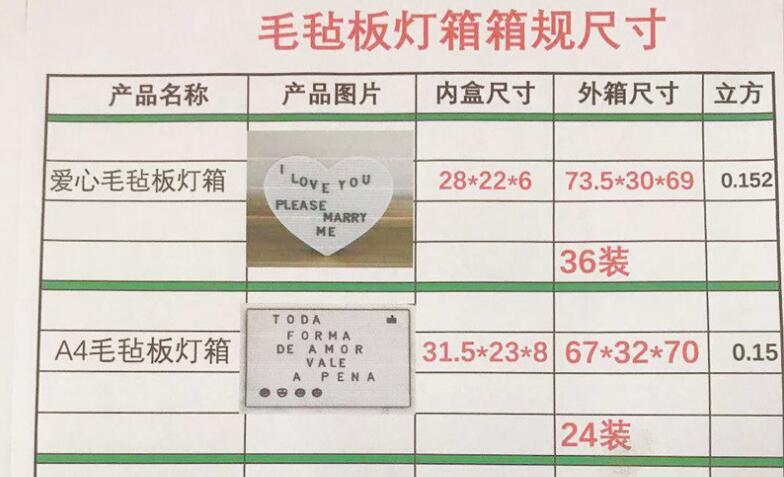 毛毡板灯箱箱规尺寸
产品名称 产品图片 内盒尺寸 外箱尺寸 立方
爱心毛毡板灯箱 28*22*6 73.5*30*69 0.152
I LOVE YOU
PLEASE
MARRY
ME
36装
A4毛毡板灯箱 31.5*23*8 67*32*70 0.15
TODA
FORMA
DE AMOR
VALE
A PENA
24装